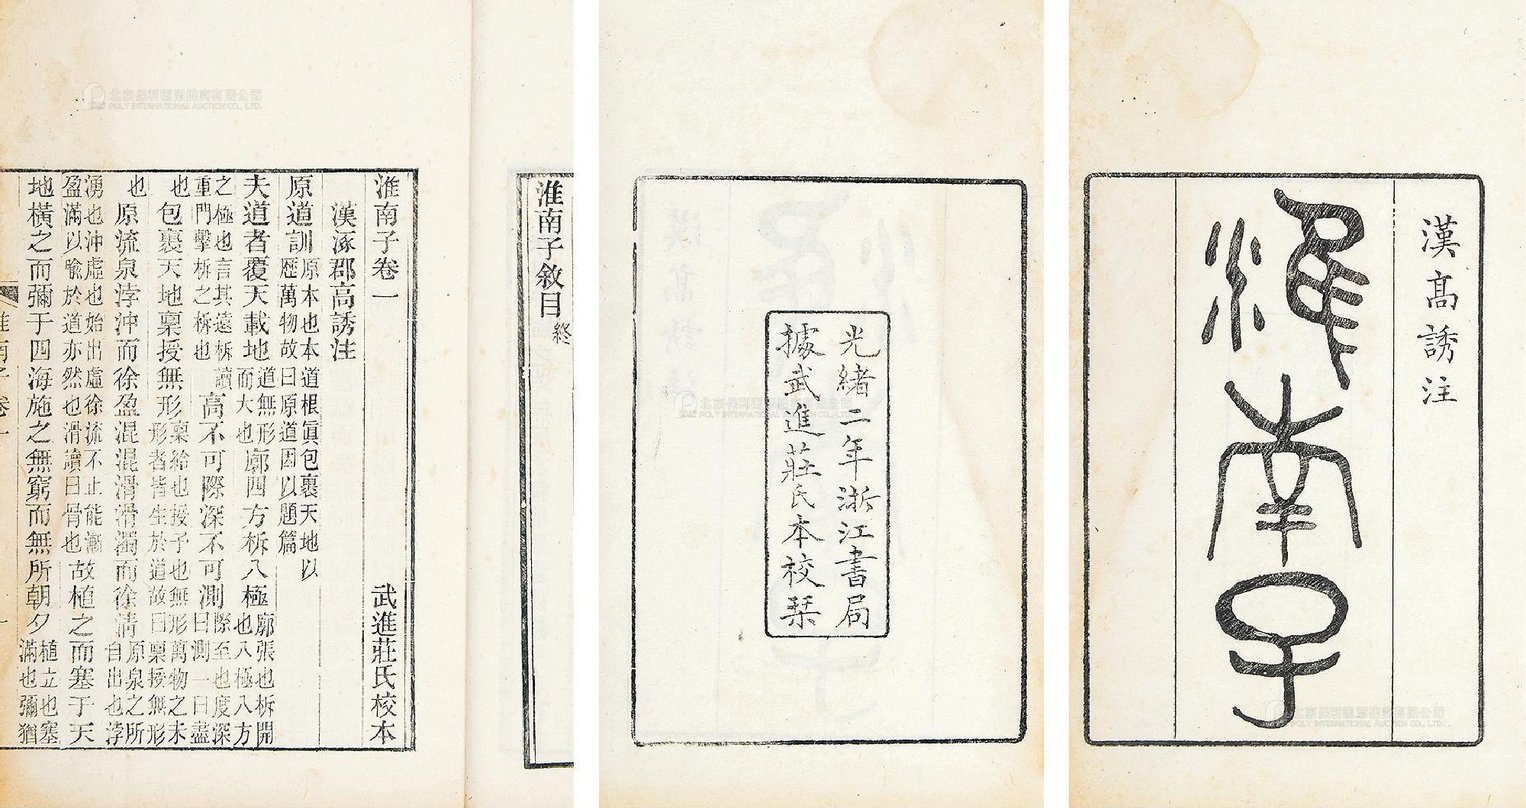 漢高誘注
淮南子
光緒二年浙江書局
據武進莊氏本校栞
淮南子敘目終
淮南子卷一 武進莊氏校本
漢涿郡高誘注
原道訓原本也本道根眞包裹天地以歷萬物故曰原道因以題篇
夫道者覆天載地道無形而大也廓四方柝八極廓張也柝開也八極八方
之極也言其遠柝讀重門擊柝之柝也高不可際深不可測際至也度深曰測一曰盡
也包裹天地稟授無形稟給也授予也無形萬物之未形者皆生於道故曰稟授無形
也原流泉浡沖而徐盈混混滑滑濁而徐清原泉之所自出也浡
湧也沖虛也始出虛徐流不止能漸盈滿以喻於道亦然也滑讀曰骨也故植之而塞于天
地橫之而彌于四海施之無窮而無所朝夕植立也塞滿也彌猶
淮南子卷一
一
POLY INTERNATIONAL AUCTION CO., LTD.
POLY INTERNATIONAL AUCTION CO., LTD.
POLY INTERNATIONAL AUCTION CO., LTD.